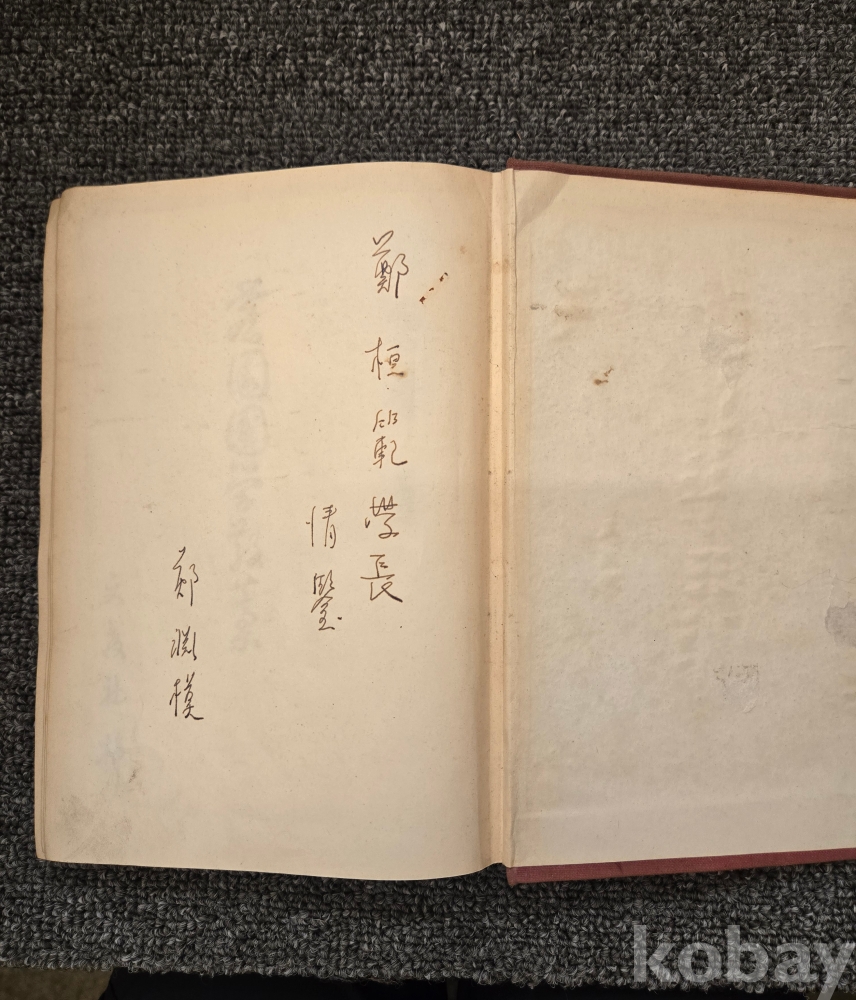 鄭桓範學長
情鑒
鄭淵模
kobay